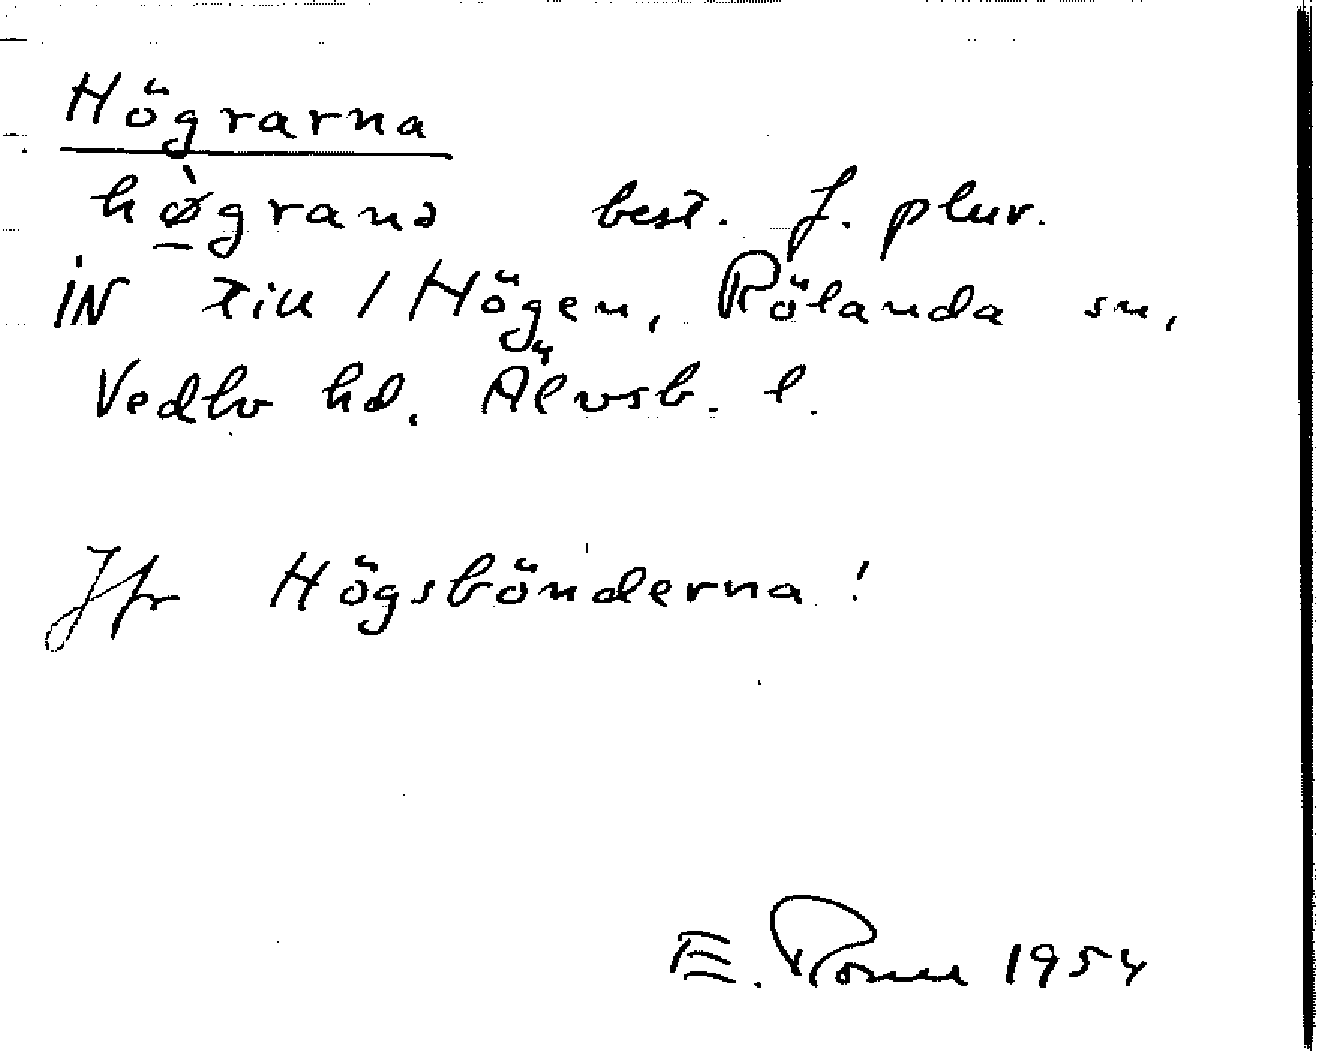 Högrarna
hø̱̀granə best. f. plur.
IN till / Högen, Rölanda sn,
Vedbo hd. Älvsb. l.
Jfr Högsbönderna!
E. 1954